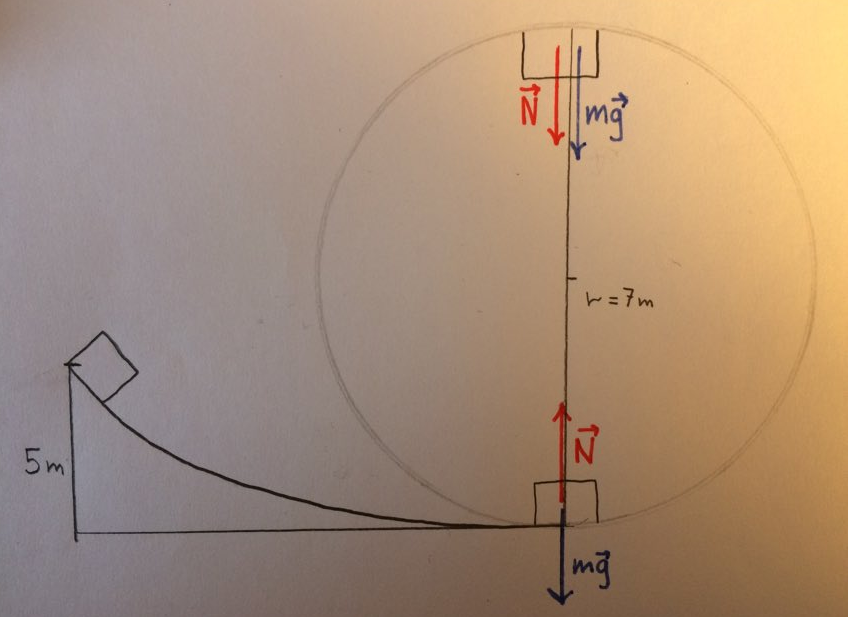 N⃗
mg⃗
r = 7m
5m
N⃗
mg⃗